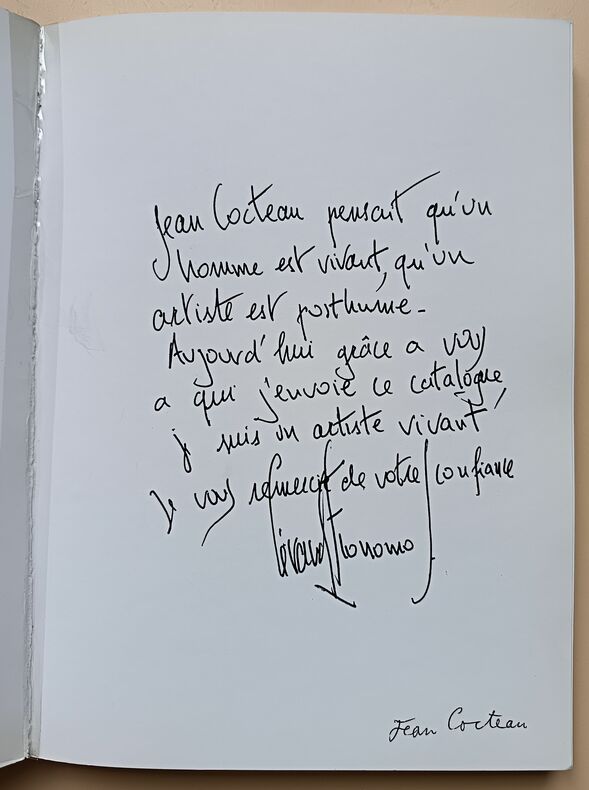 Jean Cocteau pensait qu'un
homme est vivant, qu'un
artiste est posthume -
Aujourd'hui grâce a vous
a qui j'envoie ce catalogue,
je suis un artiste vivant !
Je vous remercie de votre confiance
Jean Cocteau